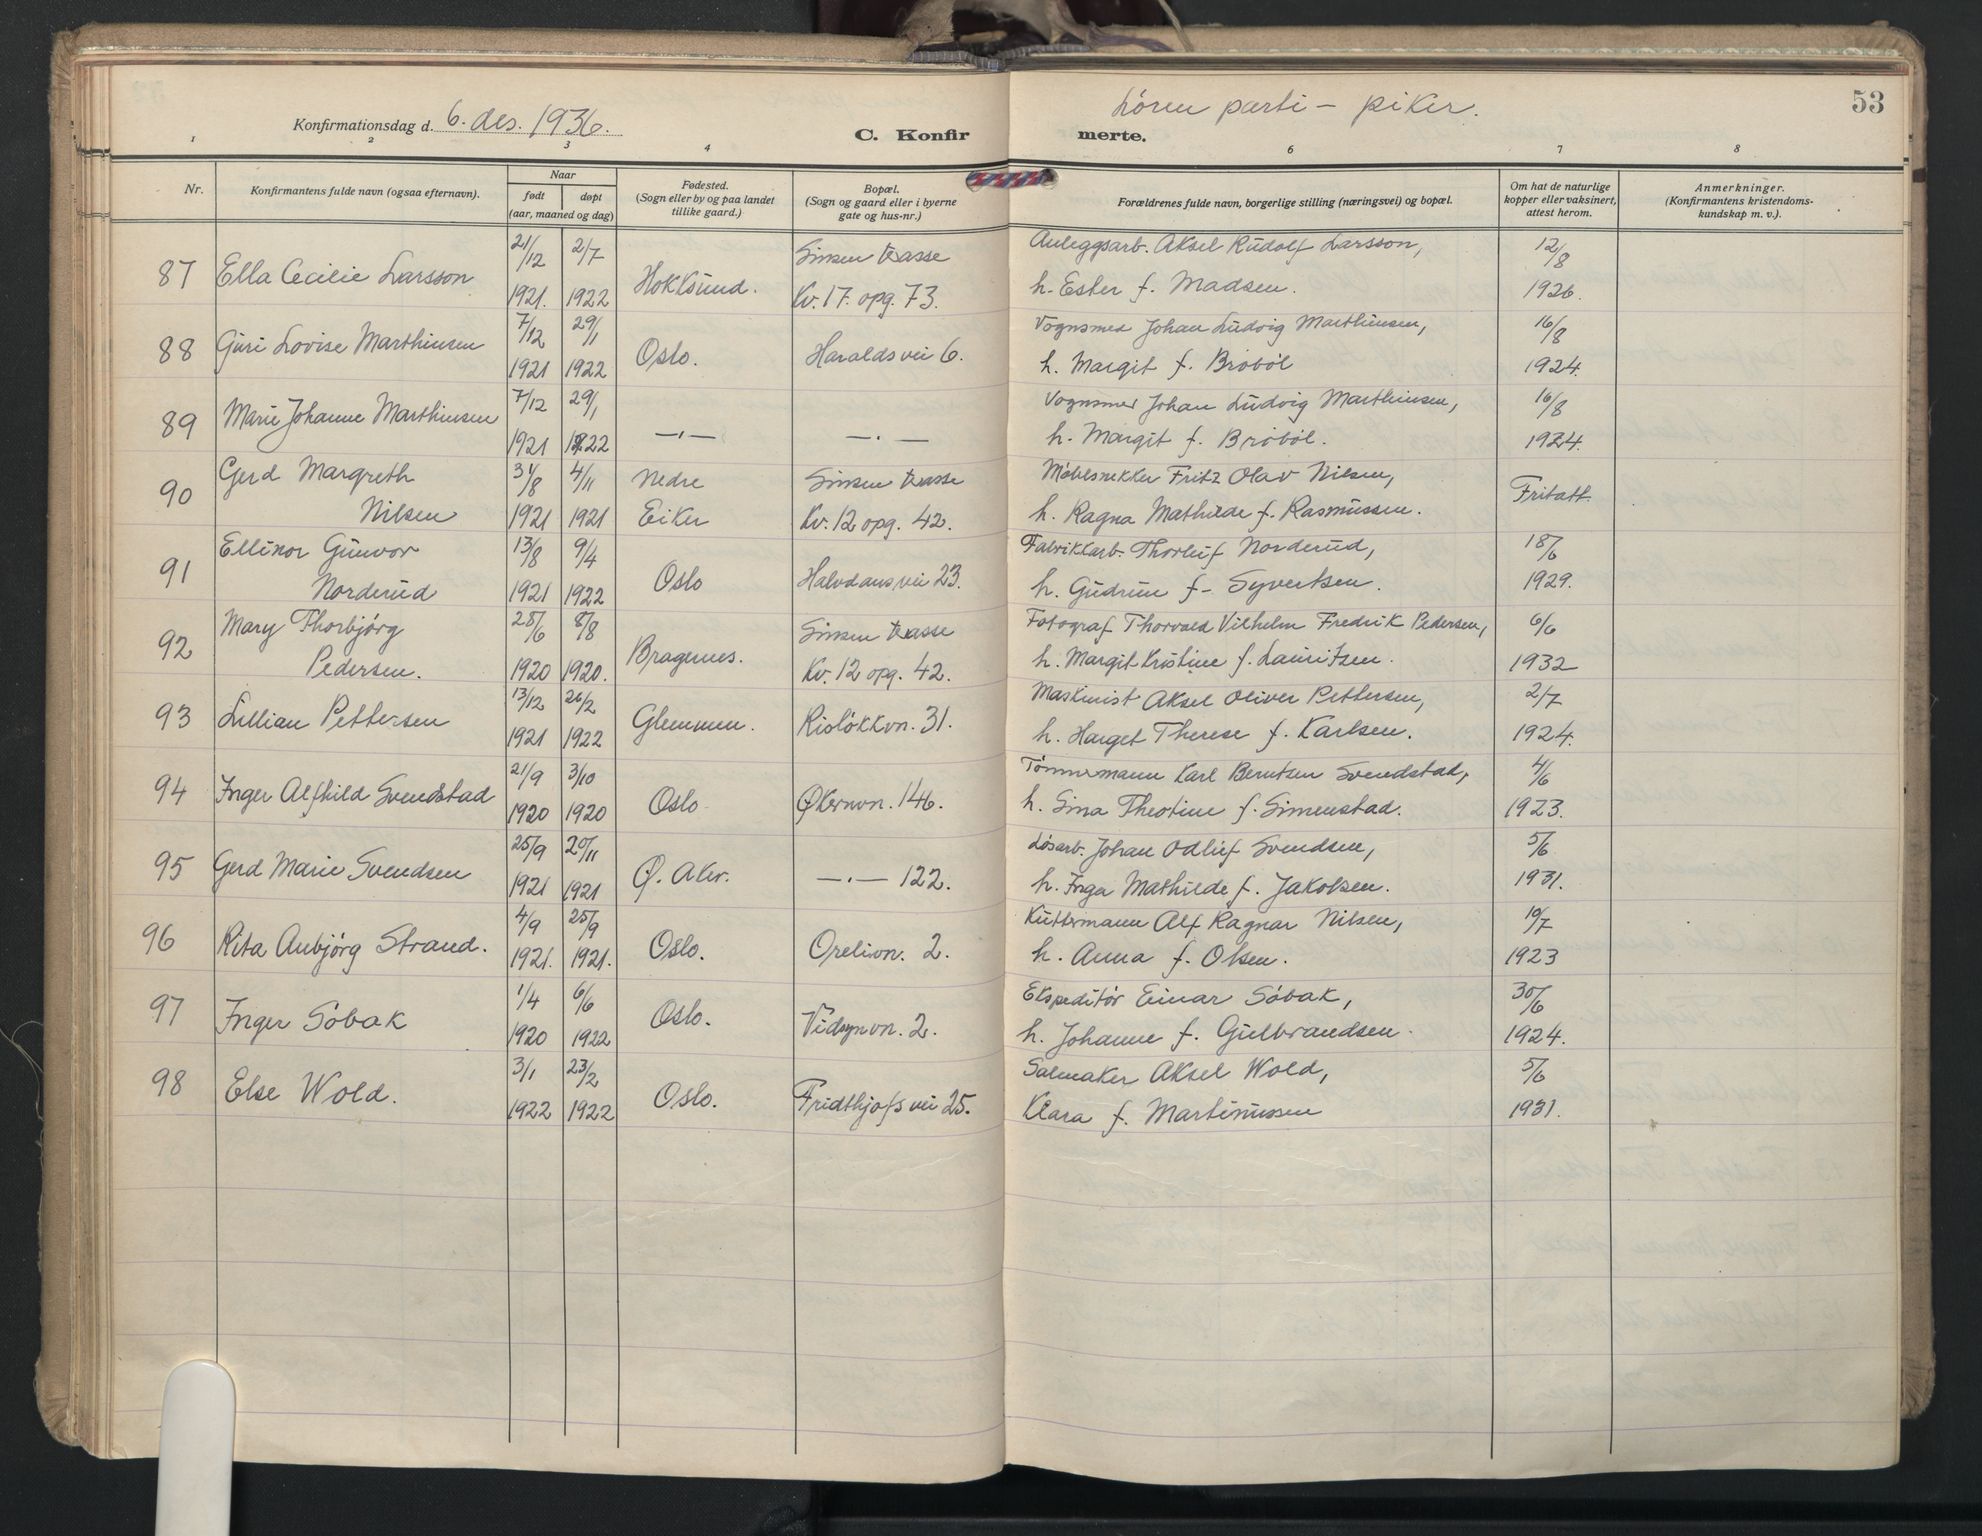 53
Konfirmationsdag d. 6. des. 1936.
Lören parti - piker.
C. Konfir
merte.
1 2 3 4 6 7 8
Nr.
Konfirmantens fulde navn (ogsaa efternavn).
Naar
født døpt
(aar, maaned og dag)
Fødested.
(Sogn eller by og paa landet
tillike gaard.)
Bopæl.
(Sogn og gaard eller i byerne
gate og hus-nr.)
Forældrenes fulde navn, borgerlige stilling (næringsvei) og bopæl.
Om hat de naturlige
kopper eller vaksinert,
attest herom.
Anmerkninger.
(Konfirmantens kristendoms-
kundskap m. v.).
21/12 2/7 Sinsen trasse Anleggsarb. Aksel Rudolf Larsson, 12/8
87 Ella Cecilie Larsson 1921. 1922 Hokksund. Kv. 17. opg. 73. h. Ester f. Madsen. 1926.
7/12 29/1 Vognsmed Johan Ludvig Marthinsen, 16/8
88 Guri Lovise Marthinsen 1921 1922 Oslo. Haralds vei 6. h. Margit f. Bröböl 1924.
7/12 29/1 Vognsmed Johan Ludvig Marthinsen, 16/8
89 Marie Johanne Marthinsen 1921 1922 —"— —"— h. Margit f. Bröböl. 1924.
Gerd Margreth 31/8 4/11 Nedre Sinsen trasse Möbelsnekker Fritz Olav Nilsen,
90 Nilsen 1921 1921 Eiker Kv. 12 opg. 42. h. Ragna Mathilde f. Rasmussen. Fritatt
Ellinor Gunvor 13/8 9/4 Fabrikkarb. Thorleif Norderud, 18/6
91 Norderud 1921 1922 Oslo Halvdans vei 23. h. Gudrun f. Syvertsen. 1929.
Mary Thorbjörg 25/6 8/8 Sinsen trasse Fotograf Thorvald Vilhelm Fredrik Pedersen, 6/6
92 Pedersen. 1920 1920. Bragernes. Kv. 12 opg. 42. h. Margit Kristine f. Lauritzen. 1932
13/12 26/2 Maskinist Aksel Oliver Pettersen, 2/7
93 Lillian Pettersen 1921 1922 Glemmen. Risløkkvn. 31. h. Harget Therese f. Karlsen. 1924.
21/9 3/10 Tömmermann Karl Berntsen Svendstad, 4/6
94 Inger Alfhild Svendstad 1920 1920 Oslo Økernvn. 146. h. Sina Theotine f. Simenstad. 1923.
25/9 20/11 Løsarb. Johan Odleif Svendsen, 5/6
95 Gerd Marie Svendsen 1921 1921 Ø. Aker. —"— 122. h. Inga Mathilde f. Jakobsen. 1931.
4/9 25/9 Kuttermann Alf Ragnar Nilsen, 10/7
96 Rita Anbjørg Strand. 1921. 1921. Oslo. Orelivn. 2. h. Anna f. Olsen. 1923
1/4 6/6 Ekspeditör Einar Söbak, 30/6
97 Inger Söbak 1920 1922 Oslo. Vidsynvn. 2. h. Johanne f. Gulbrandsen. 1924.
3/1 23/2 Salmaker Aksel Wold, 5/6
98 Else Wold. 1922 1922 Oslo. Fridthjofs vei 25. Klara f. Martinussen 1931.